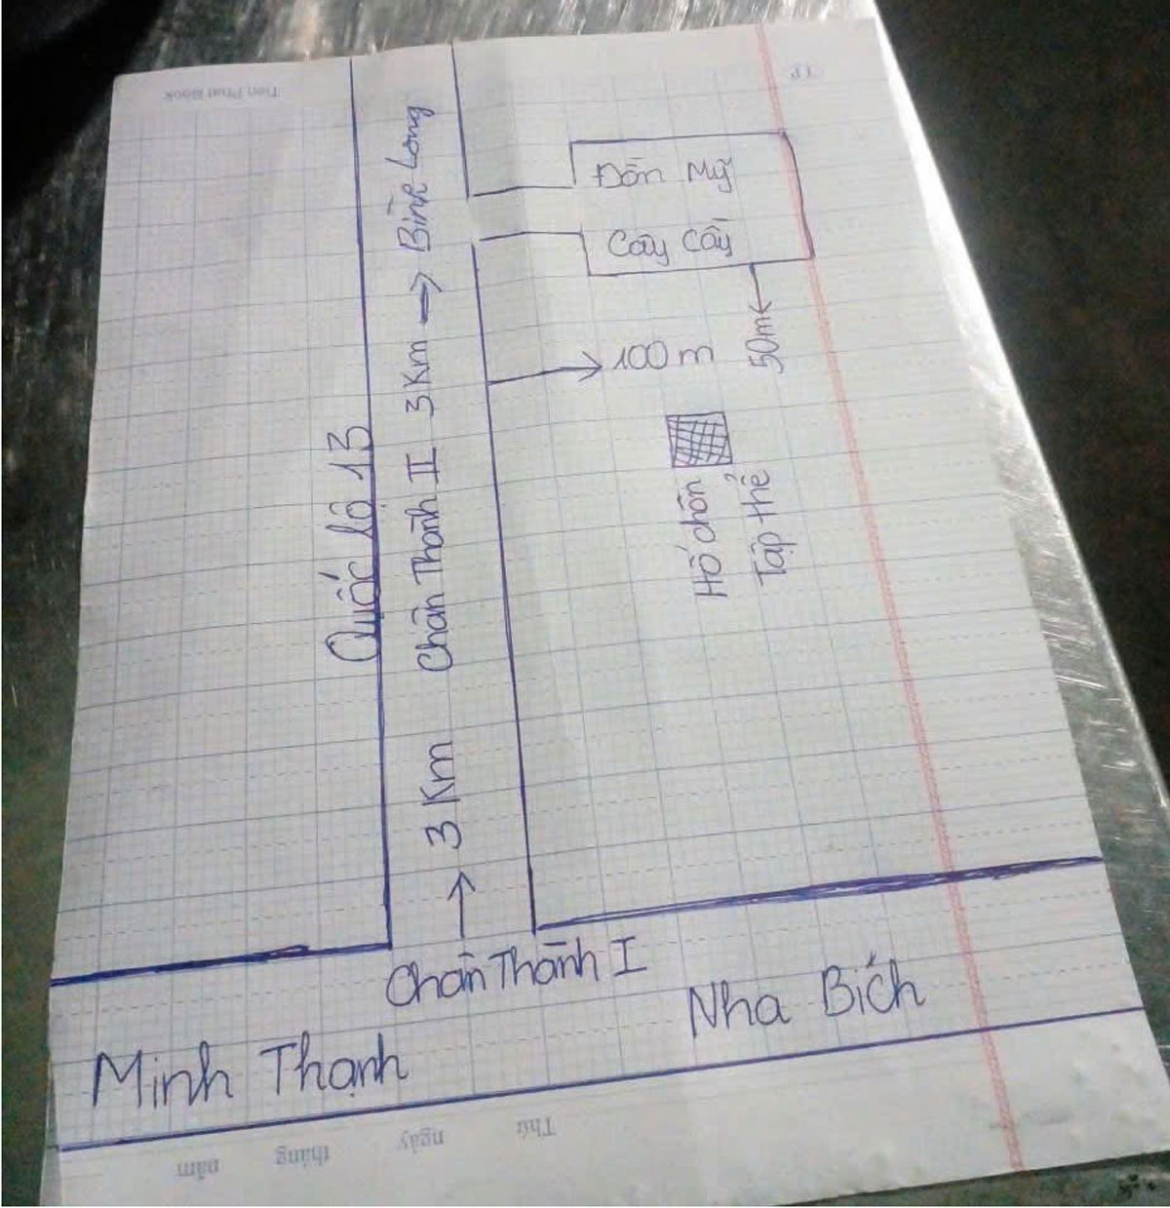 Tien Phat Book
TP
Đồn Mỹ
Cây Cầy
50m
100 m
Quốc lộ 13
3 Km Chân Thành II 3 Km → Bình Long
Hố chôn
Tập thể
Chân Thành I
Nha Bích
Minh Thạnh
Thứ ngày tháng năm